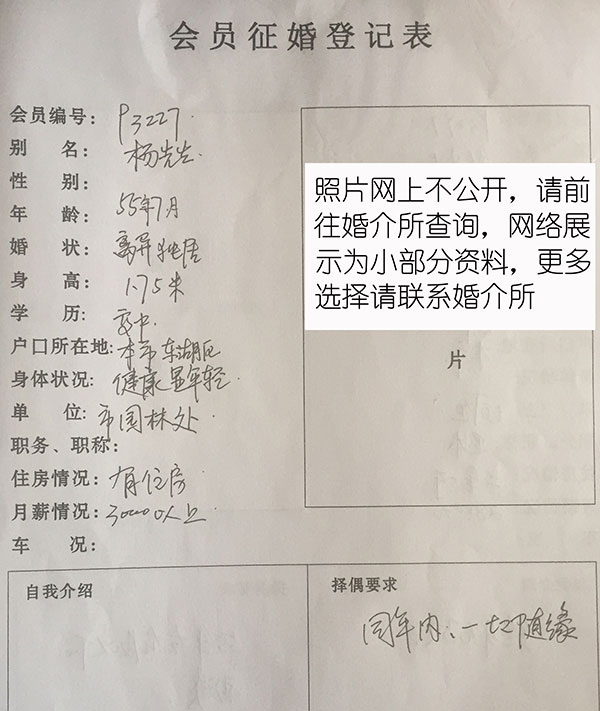 会员征婚登记表
会员编号: P3227
别 名: 杨先生
性 别:
年 龄: 55年7月
婚 状: 离异独居
身 高: 1.75米
学 历: 高中
户口所在地: 本市东湖区
身体状况: 健康显年轻
单 位: 市园林处
职务、职称:
住房情况: 有住房
月薪情况: 3000以上
车 况:
照片网上不公开，请前
往婚介所查询，网络展
示为小部分资料，更多
选择请联系婚介所
片
自我介绍
择偶要求
同年内、一切随缘